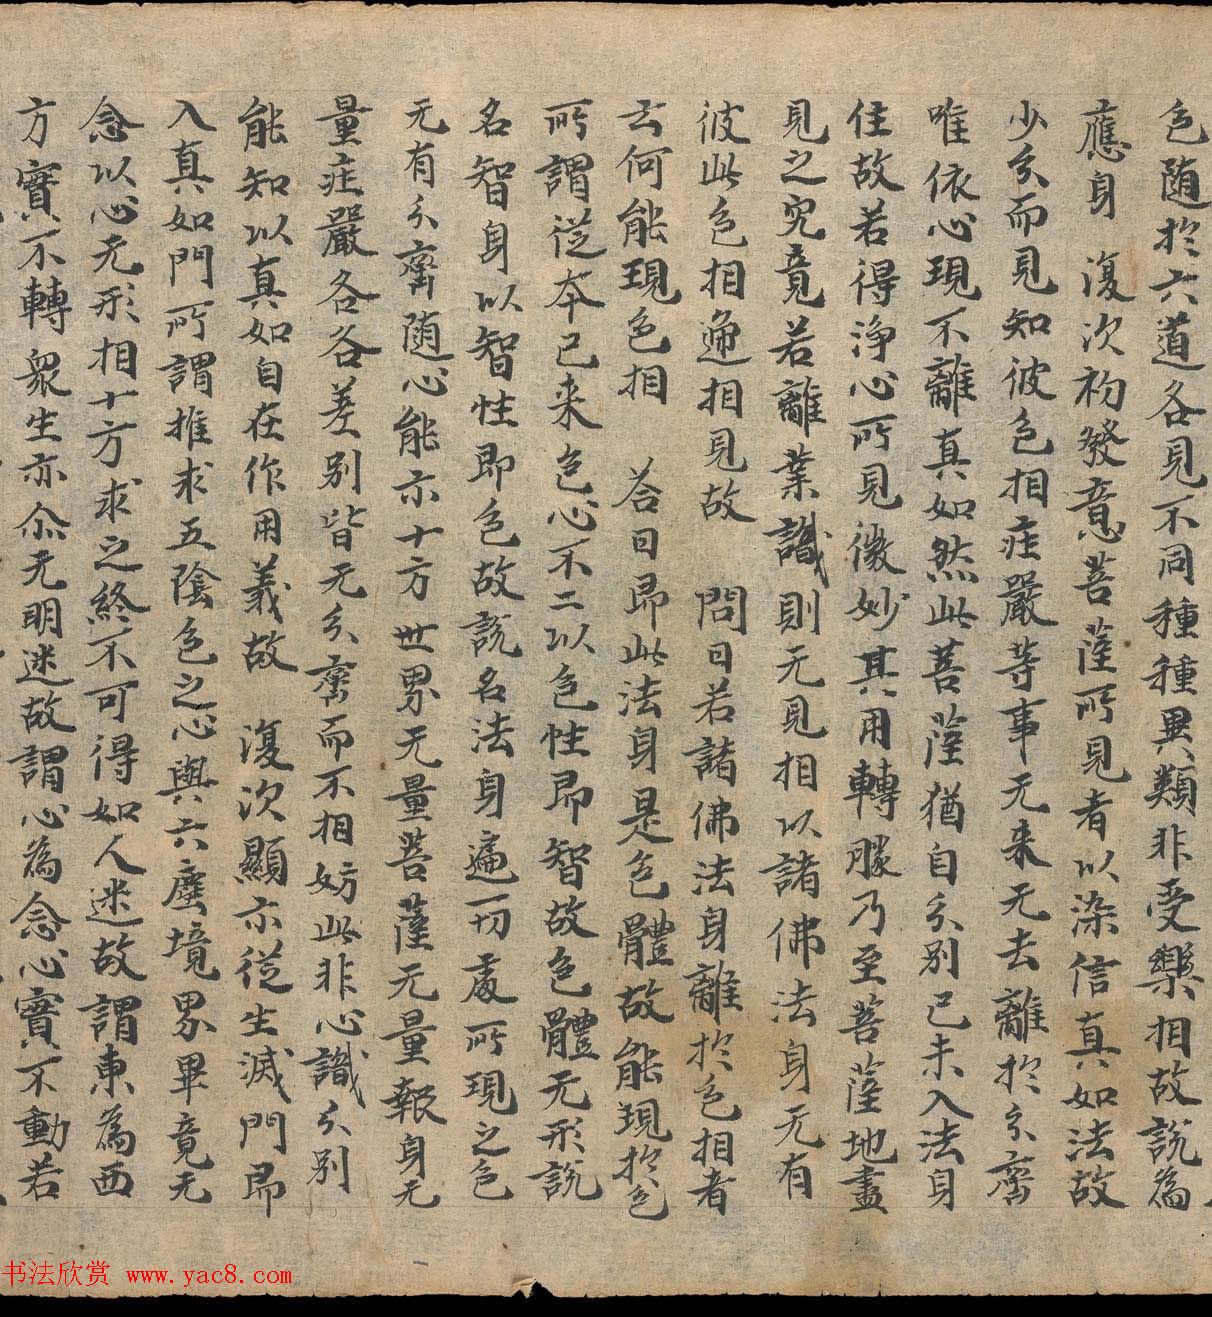 色随於六道各見不同種種異類非受樂相故説為
應身 復次初發意菩薩所見者以染信真如法故
少分而見知彼色相庄嚴等事无来无去離於分齊
唯依心現不離真如然此菩薩猶自分別已未入法身
住故若得浄心所見微妙其用轉勝乃至菩薩地盡
見之究竟若離業識則无見相以諸佛法身无有
彼此色相逓相見故 問曰若諸佛法身離於色相者
云何能現色相 荅曰即此法身是色體故能現於色
所謂従本已来色心不二以色性即智故色體无形説
名智身以智性即色故説名法身遍一切處所現之色
无有分齊随心能示十方世界无量菩薩无量報身无
量庄嚴各各差别皆无分齊而不相妨此非心識分别
能知以真如自在作用義故 復次顯示従生滅門即
入真如門所謂推求五陰色之心與六塵境界畢竟无
念以心无形相十方求之終不可得如人迷故謂東為西
方實不轉衆生亦尒无明迷故謂心為念心實不動若
书法欣赏 www.yac8.com